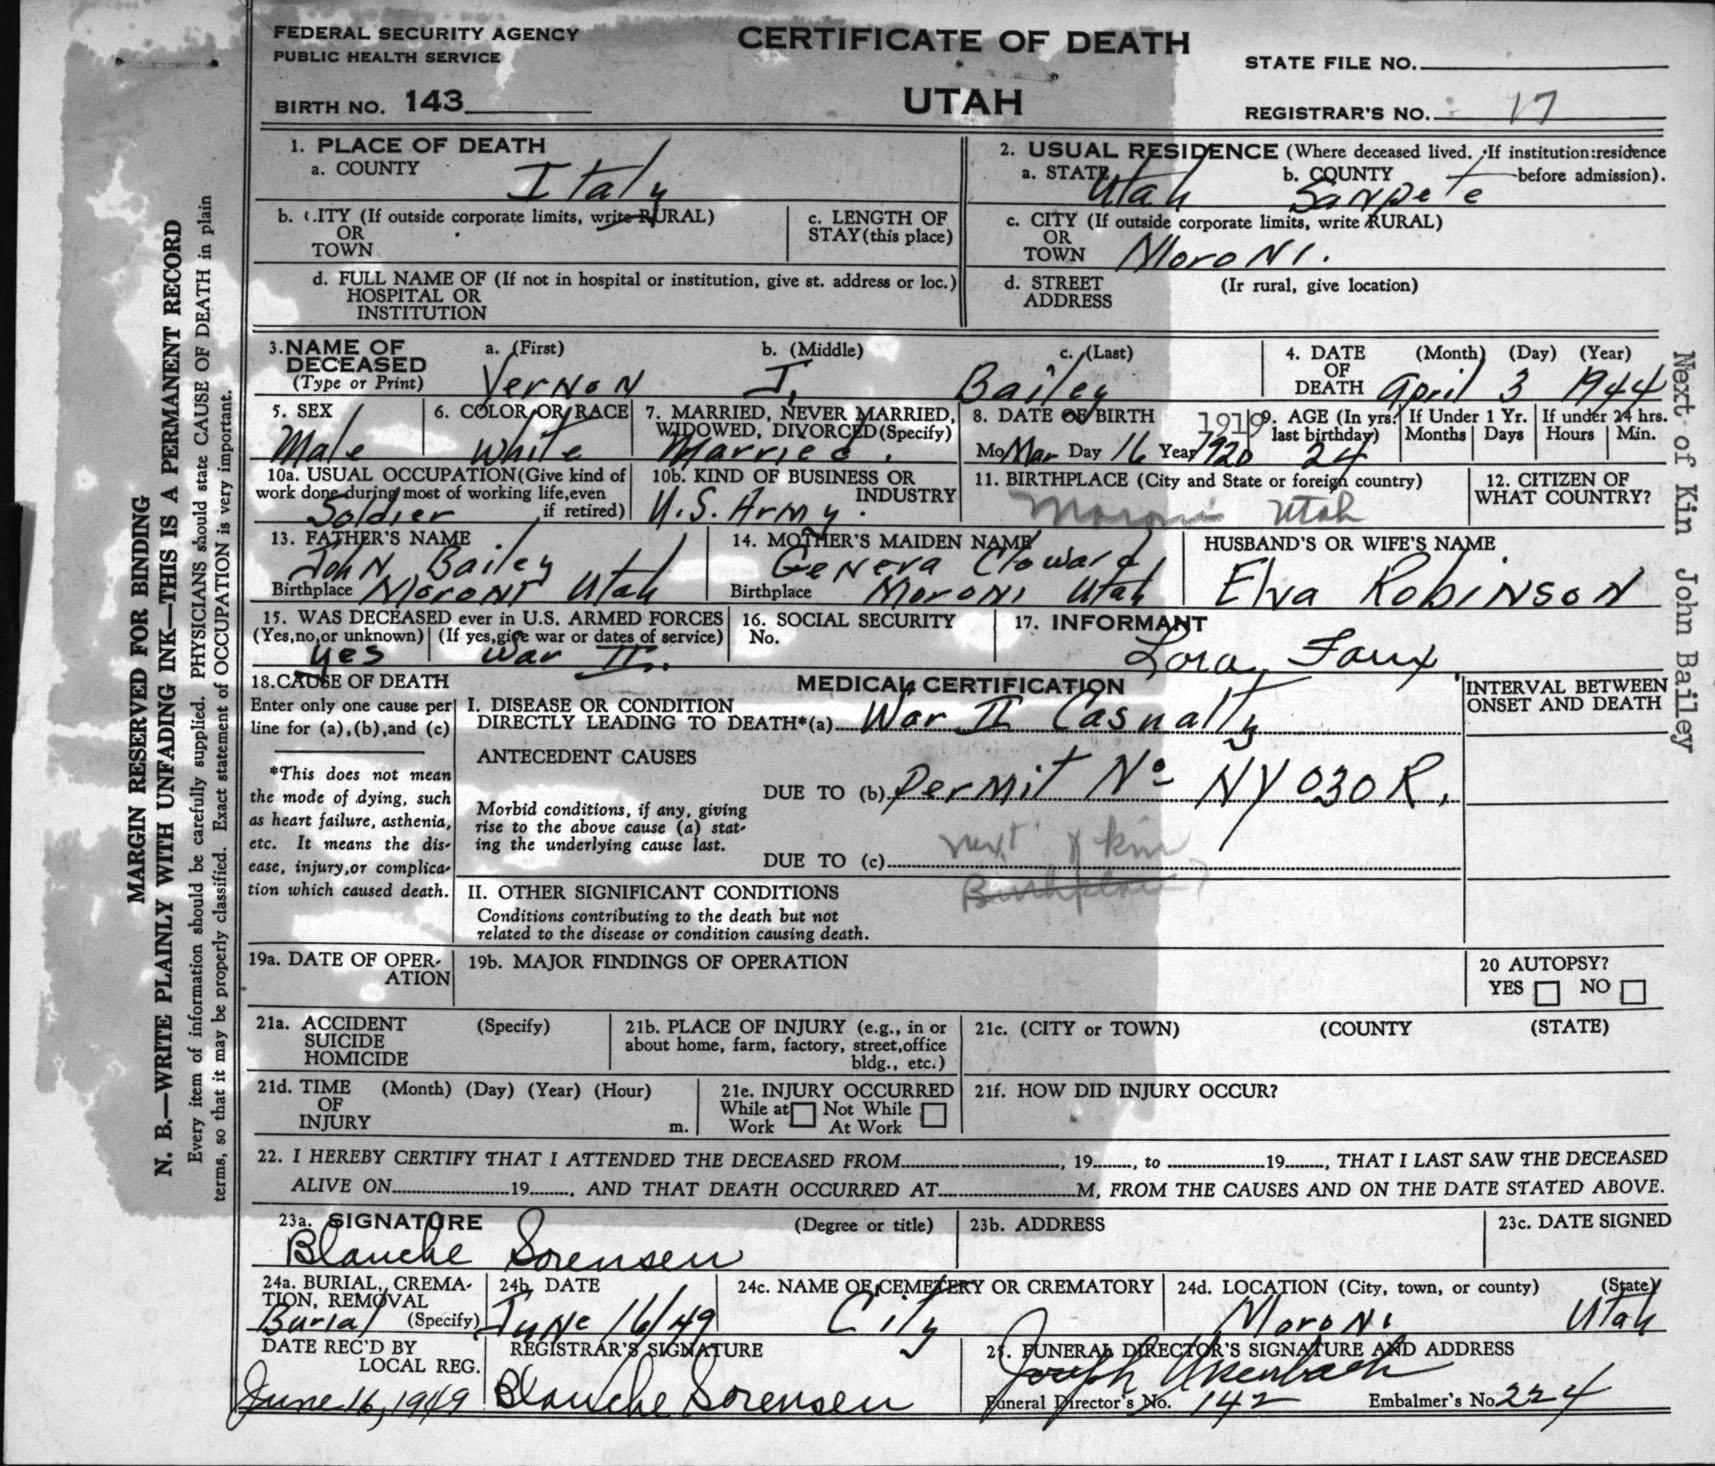 FEDERAL SECURITY AGENCY
PUBLIC HEALTH SERVICE
BIRTH NO. 143
CERTIFICATE OF DEATH
UTAH
STATE FILE NO.
REGISTRAR'S NO. 17
1. PLACE OF DEATH
a. COUNTY
Italy
b. CITY (If outside corporate limits, write RURAL)
OR
TOWN
c. LENGTH OF
STAY (this place)
d. FULL NAME OF (If not in hospital or institution, give st. address or loc.)
HOSPITAL OR
INSTITUTION
2. USUAL RESIDENCE (Where deceased lived. If institution:residence
a. STATE Utah b. COUNTY Sanpete before admission).
c. CITY (If outside corporate limits, write RURAL)
OR
TOWN Moroni.
d. STREET (Ir rural, give location)
ADDRESS
3. NAME OF DECEASED (Type or Print)
a. (First) b. (Middle) c. (Last)
Vernon I. Bailey
4. DATE OF DEATH (Month) (Day) (Year)
April 3 1944
5. SEX
Male
6. COLOR OR RACE
White
7. MARRIED, NEVER MARRIED,
WIDOWED, DIVORCED (Specify)
Married.
8. DATE OF BIRTH 1919
Mo Mar Day 16 Year 1920
9. AGE (In yrs. last birthday)
24
If Under 1 Yr.
Months Days
If under 24 hrs.
Hours Min.
10a. USUAL OCCUPATION (Give kind of
work done during most of working life, even
if retired)
Soldier
10b. KIND OF BUSINESS OR
INDUSTRY
U.S. Army.
11. BIRTHPLACE (City and State or foreign country)
Moroni Utah
12. CITIZEN OF
WHAT COUNTRY?
13. FATHER'S NAME
John Bailey
Birthplace Moroni Utah
14. MOTHER'S MAIDEN NAME
Geneva Cloward
Birthplace Moroni Utah
HUSBAND'S OR WIFE'S NAME
Elva Robinson
15. WAS DECEASED ever in U.S. ARMED FORCES
(Yes,no,or unknown) (If yes,give war or dates of service)
yes War II.
16. SOCIAL SECURITY
No.
17. INFORMANT
Lora Faux
18. CAUSE OF DEATH
Enter only one cause per
line for (a),(b),and (c)
*This does not mean
the mode of dying, such
as heart failure, asthenia,
etc. It means the dis-
ease, injury,or complica-
tion which caused death.
MEDICAL CERTIFICATION
I. DISEASE OR CONDITION
DIRECTLY LEADING TO DEATH*(a) War II Casualty
ANTECEDENT CAUSES
DUE TO (b) Permit No NY 030 R.
Morbid conditions, if any, giving
rise to the above cause (a) stat-
ing the underlying cause last.
next of kin
DUE TO (c)
Birthplace
II. OTHER SIGNIFICANT CONDITIONS
Conditions contributing to the death but not
related to the disease or condition causing death.
INTERVAL BETWEEN
ONSET AND DEATH
19a. DATE OF OPER-
ATION
19b. MAJOR FINDINGS OF OPERATION
20 AUTOPSY?
YES NO
21a. ACCIDENT (Specify)
SUICIDE
HOMICIDE
21b. PLACE OF INJURY (e.g., in or
about home, farm, factory, street,office
bldg., etc.)
21c. (CITY or TOWN) (COUNTY (STATE)
21d. TIME (Month) (Day) (Year) (Hour)
OF
INJURY m.
21e. INJURY OCCURRED
While at Work Not While At Work
21f. HOW DID INJURY OCCUR?
22. I HEREBY CERTIFY THAT I ATTENDED THE DECEASED FROM , 19 , to 19 , THAT I LAST SAW THE DECEASED
ALIVE ON 19 , AND THAT DEATH OCCURRED AT M, FROM THE CAUSES AND ON THE DATE STATED ABOVE.
23a. SIGNATURE (Degree or title)
Blanche Sorensen
23b. ADDRESS
23c. DATE SIGNED
24a. BURIAL, CREMA-
TION, REMOVAL
(Specify)
Burial
24b. DATE
June 16/49
24c. NAME OF CEMETERY OR CREMATORY
City
24d. LOCATION (City, town, or county) (State)
Moroni Utah
DATE REC'D BY
LOCAL REG.
June 16, 1949
REGISTRAR'S SIGNATURE
Blanche Sorensen
25. FUNERAL DIRECTOR'S SIGNATURE AND ADDRESS
Joseph
Funeral Director's No. 142 Embalmer's No 224
MARGIN RESERVED FOR BINDING
N. B.—WRITE PLAINLY WITH UNFADING INK—THIS IS A PERMANENT RECORD
Every item of information should be carefully supplied. PHYSICIANS should state CAUSE OF DEATH in plain
terms, so that it may be properly classified. Exact statement of OCCUPATION is very important.
Next of Kin John Bailey